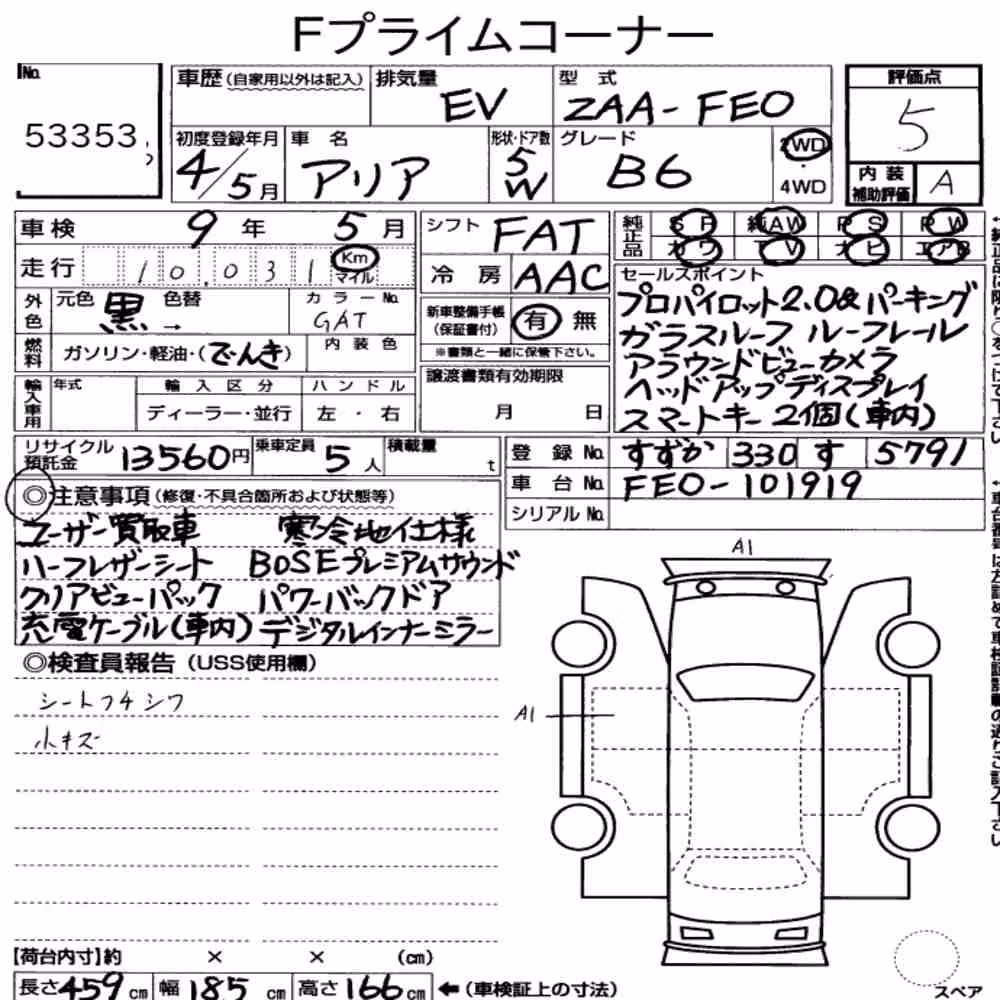 Fプライムコーナー
No.
53353
車歴(自家用以外は記入)
排気量
EV
型 式
ZAA-FE0
評価点
5
初度登録年月
4/5月
車 名
アリア
形状・ドア数
5
W
グレード
B6
2WD
・
4WD
内 装
補助評価
A
車検 9 年 5 月
シフト
FAT
純正品
S R 純AW P S P W
カワ T V ナビ エアB
走行 10,031 Km
マイル
冷 房
AAC
セールスポイント
プロパイロット2.0&パーキング
ガラスルーフ ルーフレール
アラウンドビューカメラ
ヘッドアップディスプレイ
スマートキー2個(車内)
外色
元色 黒 → 色替
カラーNo.
GAT
新車整備手帳
(保証書付)
有 無
※書類と一緒に保管下さい。
燃料
ガソリン・軽油・(でんき)
内 装 色
輸入車用
年式
輸 入 区 分
ディーラー・並行
ハ ン ド ル
左 ・ 右
譲渡書類有効期限
月 日
リサイクル
預託金 13560円
乗車定員 5人
積載量
t
登 録 No. すずか 330 す 5791
車 台 No. FE0-101919
シリアルNo.
◎注意事項(修復・不具合箇所および状態等)
ユーザー買取車 寒冷地仕様
ハーフレザーシート BOSEプレミアムサウンド
クリアビューパック パワーバックドア
充電ケーブル(車内) デジタルインナーミラー
◎検査員報告(USS使用欄)
シートフチシワ
小キズ
A1
A1
【荷台内寸】約 × × (cm)
長さ459cm 幅185cm 高さ166cm ←(車検証上の寸法)
スペア